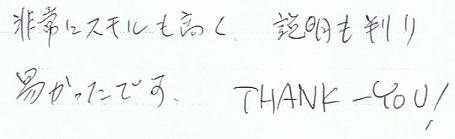 非常にスキルも高く、説明も判り
易かったです。 THANK-YOU!